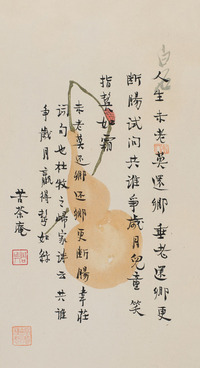 人生未老莫還鄉垂老還鄉更
斷腸試問共誰爭歲月兒童笑
指鬢如霜
未老莫還鄉還鄉更斷腸韋莊
詞句也杜牧之歸家詩云共誰
爭歲月贏得鬢如絲
苦茶庵